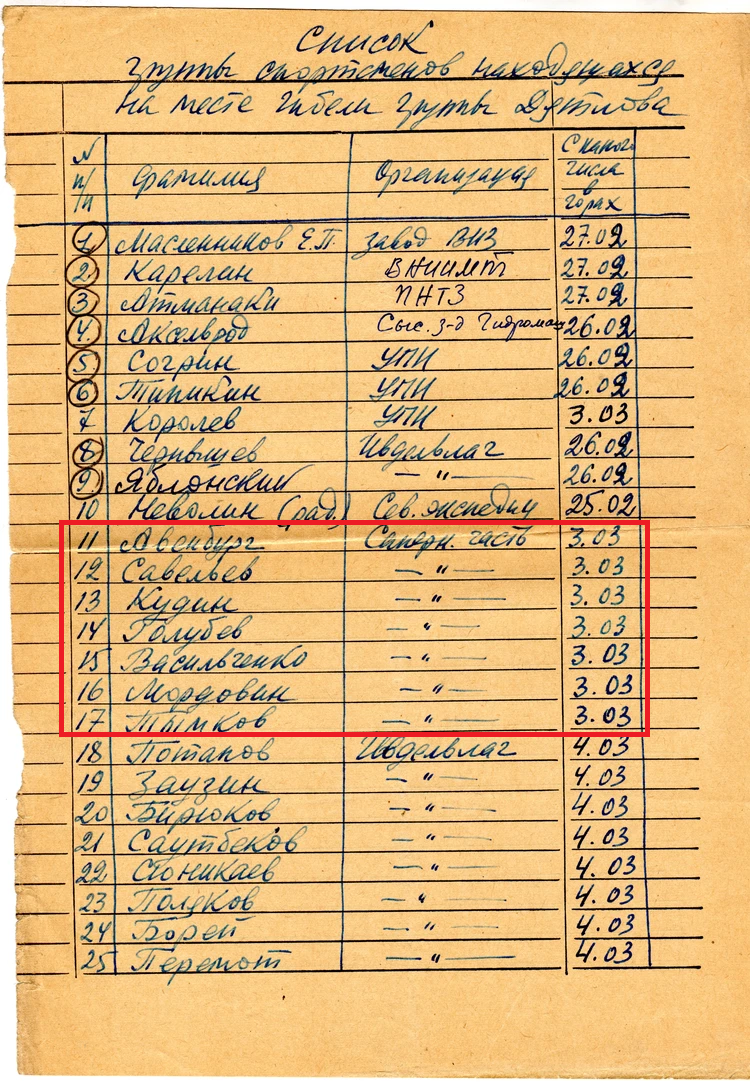 Список
группы спортсменов находящихся
на месте гибели группы Дятлова
N п/п фамилия Организация С какого числа в горах
1 Масленников Е.П. завод ВИЗ 27.02
2 Карелин ВНИИМТ 27.02
3 Атманаки ПНТЗ 27.02
4. Аксельрод Сыс. з-д Гидромаш 26.02
5 Согрин УПИ 26.02
6 Типикин УПИ 26.02
7 Королев УПИ 3.03
8 Чернышев Ивдельлаг 26.02
9 Яблонский — " — 26.02
10 Неволин (рад.) Сев. экспедиц 25.02
11 Авенбург Саперн. часть 3.03
12 Савельев — " — 3.03
13 Кудин — " — 3.03
14 Голубев — " — 3.03
15 Васильченко — " — 3.03
16 Мордовин — " — 3.03
17 Тымков — " — 3.03
18 Потапов Ивдельлаг 4.03
19 Заузин — " — 4.03
20 Бирюков — " — 4.03
21 Саутбеков — " — 4.03
22 — " — 4.03
23 Поляков — " — 4.03
24 Борей — " — 4.03
25 Перемот — " — 4.03